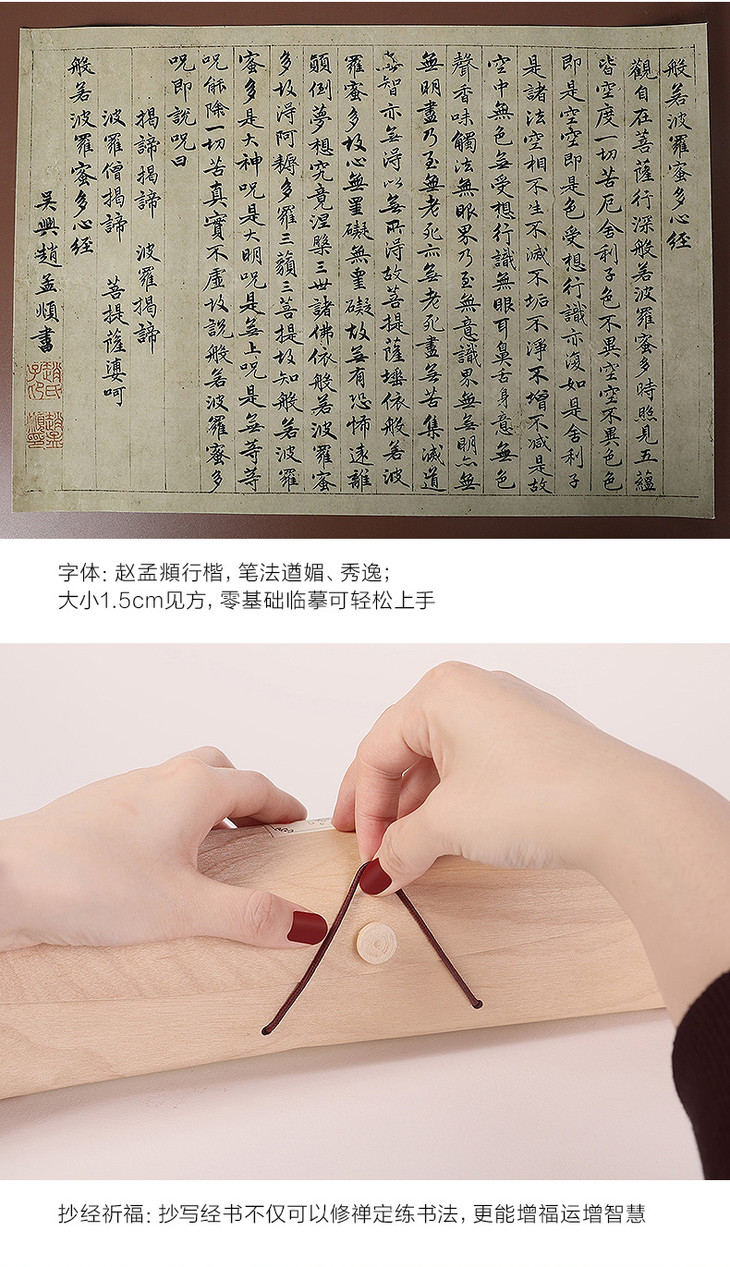 般若波羅蜜多心經
觀自在菩薩行深般若波羅蜜多時照見五蘊
皆空度一切苦厄舍利子色不異空空不異色色
即是空空即是色受想行識亦復如是舍利子
是諸法空相不生不滅不垢不淨不增不减是故
空中無色無受想行識無眼耳鼻舌身意無色
聲香味觸法無眼界乃至無意識界無無明亦無
無明盡乃至無老死亦無老死盡無苦集滅道
無智亦無得以無所得故菩提薩埵依般若波
羅蜜多故心無罣礙無罣礙故無有恐怖遠離
顛倒夢想究竟涅槃三世諸佛依般若波羅蜜
多故得阿耨多羅三藐三菩提故知般若波羅
蜜多是大神呪是大明呪是無上呪是無等等
呪能除一切苦真實不虛故説般若波羅蜜多
呪即説呪曰
揭諦揭諦 波羅揭諦
波羅僧揭諦 菩提薩婆呵
般若波羅蜜多心經
吳興趙孟頫書
字体: 赵孟頫行楷, 笔法遒媚、秀逸;
大小1.5cm见方, 零基础临摹可轻松上手
抄经祈福: 抄写经书不仅可以修禅定练书法, 更能增福运增智慧